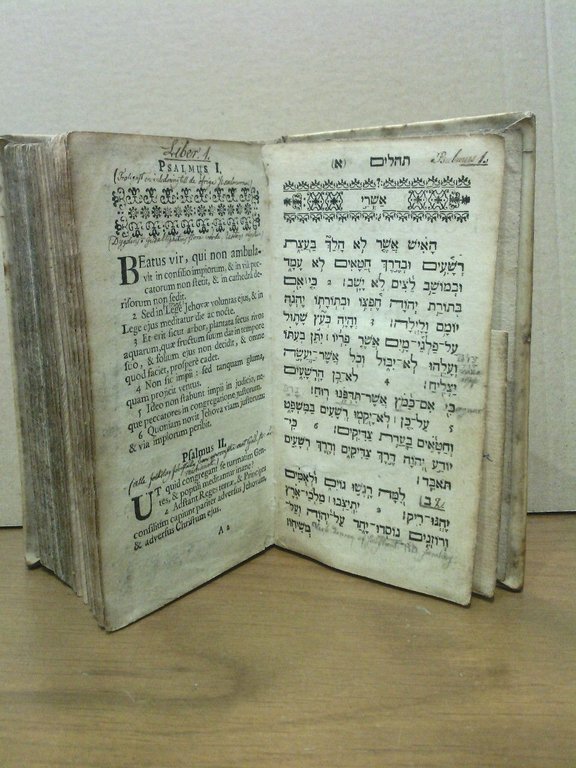 Liber 1.
PSALMUS I.
BEatus vir, qui non ambula-
vit in consilio impiorum, & in via pec-
catorum non stetit, & in cathedrâ de-
risorum non sedit.
2 Sed in Lege Jehovæ voluntas ejus, & in
Lege ejus meditatur die ac nocte.
3 Et erit sicut arbor, plantata secus rivos
aquarum, quæ fructum suum dat in tempore
suo, & folium ejus non decidit, & omne
quod faciet, prosperè cadet.
4 Non sic impii: sed tanquam gluma,
quam projicit ventus.
5 Ideo non stabunt impii in judicio, ne-
que peccatores in congregatione justorum.
6 Quoniam novit Jehova viam justorum:
& via impiorum peribit.
Psalmus II.
UT quid congregant se turmatim Gen-
tes, & populi meditantur inane?
2 Adstant Reges terræ, & Principes
consilium capiunt pariter adversus Jehovam,
& adversus Christum ejus.
A a
תהלים (א)
Psalmus 1.
אשרי
האיש אשר לא הלך בעצת
רשעים ובדרך חטאים לא עמד
ובמושב לצים לא ישב: 2 כי אם
בתורת יהוה חפצו ובתורתו יהגה
יומם ולילה: 3 והיה כעץ שתול
על־פלגי־מים אשר פריו יתן בעתו
ועלהו לא־יבול וכל אשר־יעשה
יצליח: 4 לא־כן הרשעים
כי אם־כמוץ אשר־תדפנו רוח:
5 על־כן לא־יקמו רשעים במשפט
וחטאים בעדת צדיקים: 6 כי־
יודע יהוה דרך צדיקים ודרך רשעים
תאבד:
ב למה רגשו גוים ולאמים
יהגו־ריק: 2 יתיצבו מלכי־ארץ
ורוזנים נוסדו־יחד על־יהוה ועל־
משיחו